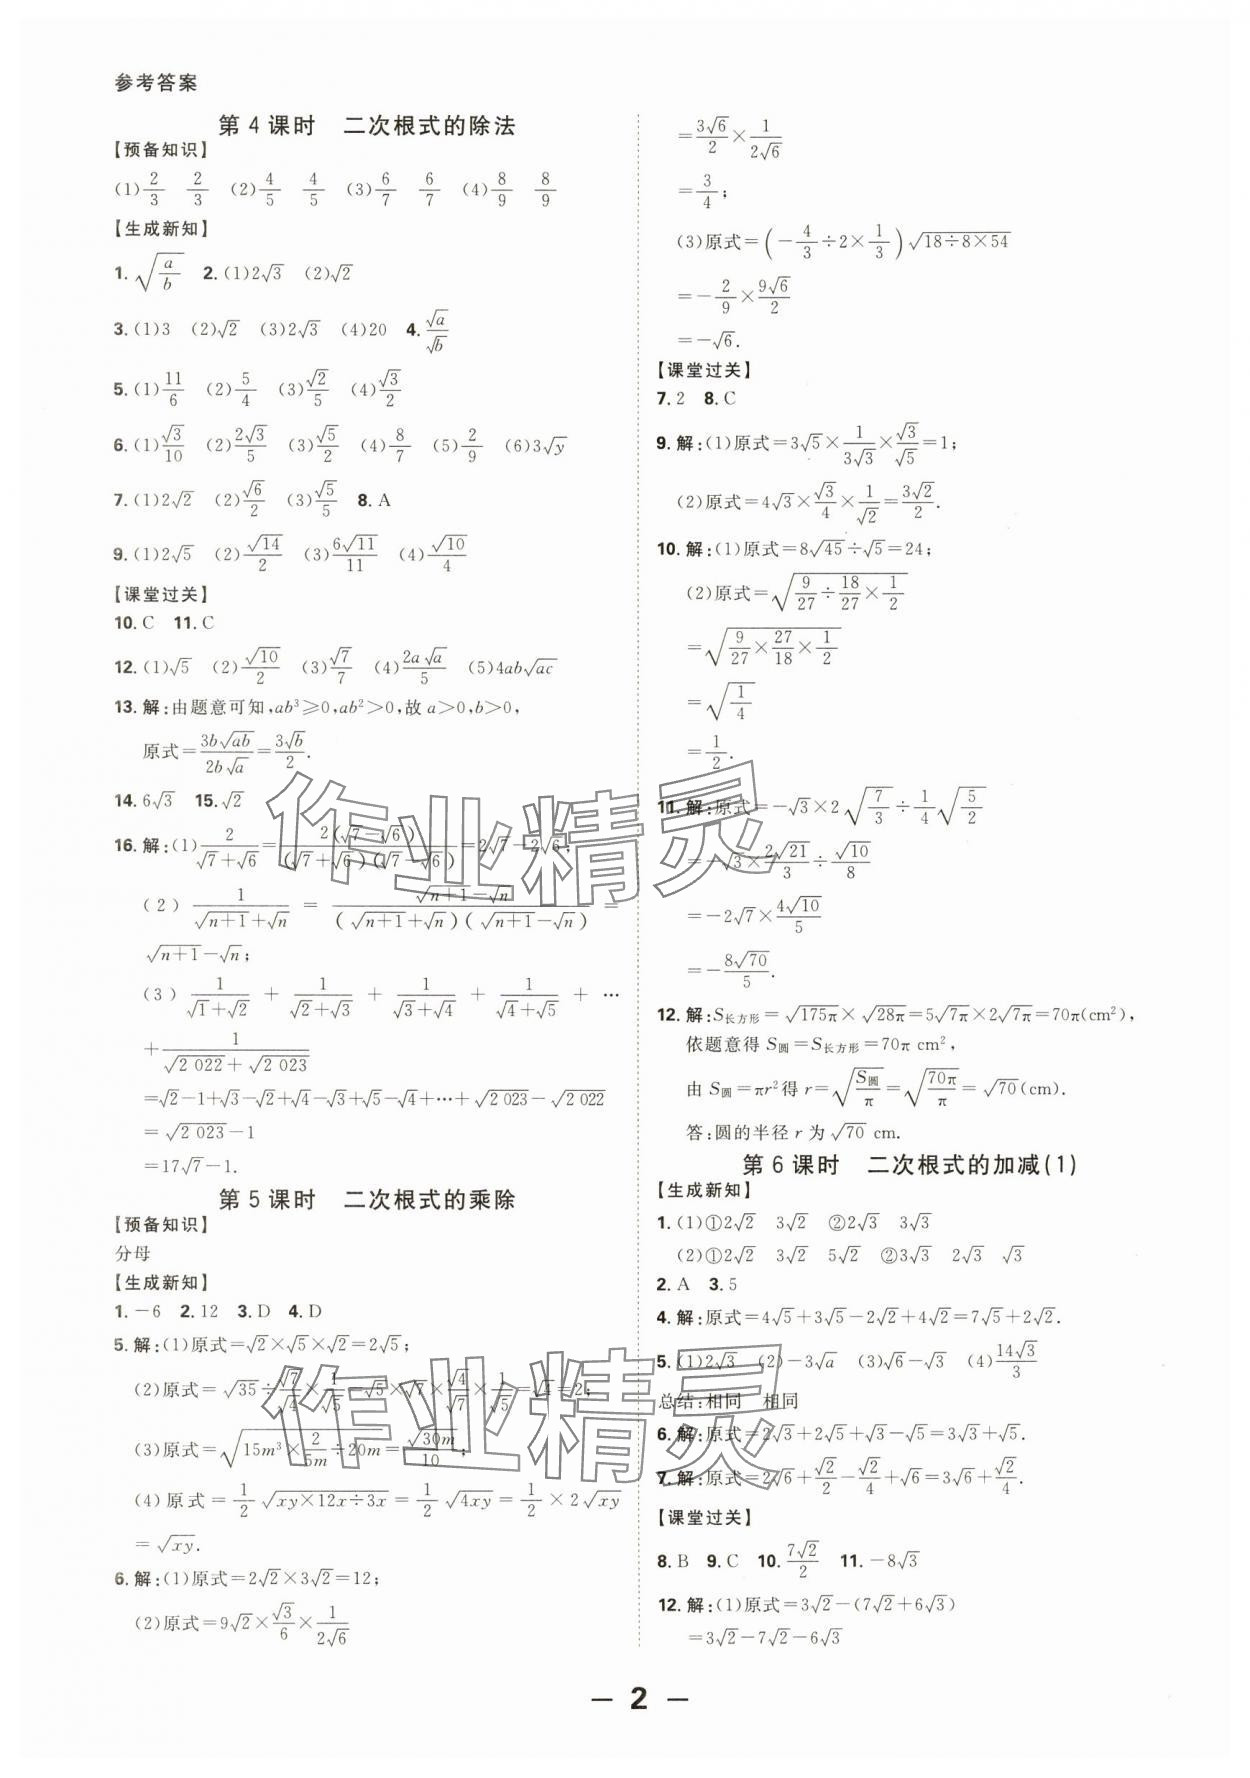 参考答案
第 4 课时　二次根式的除法
【预备知识】
(1) 2/3　2/3　(2) 4/5　4/5　(3) 6/7　6/7　(4) 8/9　8/9
【生成新知】
1. √(a/b)　2. (1)2√3　(2)√2
3. (1)3　(2)√2　(3)2√3　(4)20　4. √a/√b
5. (1) 11/6　(2) 5/4　(3) √2/5　(4) √3/2
6. (1) √3/10　(2) 2√3/5　(3) √5/2　(4) 8/7　(5) 2/9　(6)3√y
7. (1)2√2　(2) √6/2　(3) √5/5　8. A
9. (1)2√5　(2) √14/2　(3) 6√11/11　(4) √10/4
【课堂过关】
10. C　11. C
12. (1)√5　(2) √10/2　(3) √7/7　(4) 2a√a/5　(5)4ab√ac
13. 解:由题意可知,ab³≥0,ab²>0,故 a>0,b>0,
原式=3b√ab/2b√a=3√b/2.
14. 6√3　15. √2
16. 解:(1) 2/(√7+√6)=2(√7-√6)/(√7+√6)(√7-√6)=2√7-2√6;
(2) 1/(√(n+1)+√n) = (√(n+1)-√n)/(√(n+1)+√n)(√(n+1)-√n) =
√(n+1)-√n;
(3) 1/(√1+√2) + 1/(√2+√3) + 1/(√3+√4) + 1/(√4+√5) + …
+1/(√2 022+√2 023)
=√2-1+√3-√2+√4-√3+√5-√4+…+√2 023-√2 022
=√2 023-1
=17√7-1.
第 5 课时　二次根式的乘除
【预备知识】
分母
【生成新知】
1. -6　2. 12　3. D　4. D
5. 解:(1)原式=√2×√5×√2=2√5;
(2)原式=√35÷√7/√4×1/√5=√5×√7×√4/√7×1/√5=√4=2;
(3)原式=√(15m³×2/5m÷20m)=√30m/10;
(4)原式=1/2√(xy×12x÷3x)=1/2√4xy=1/2×2√xy
=√xy.
6. 解:(1)原式=2√2×3√2=12;
(2)原式=9√2×√3/6×1/2√6
=3√6/2×1/2√6
=3/4;
(3)原式=(-4/3÷2×1/3)√(18÷8×54)
=-2/9×9√6/2
=-√6.
【课堂过关】
7. 2　8. C
9. 解:(1)原式=3√5×1/3√3×√3/√5=1;
(2)原式=4√3×√3/4×1/√2=3√2/2.
10. 解:(1)原式=8√45÷√5=24;
(2)原式=√(9/27÷18/27×1/2)
=√(9/27×27/18×1/2)
=√(1/4)
=1/2.
11. 解:原式=-√3×2√(7/3)÷1/4√(5/2)
=-√3×2√21/3÷√10/8
=-2√7×4√10/5
=-8√70/5.
12. 解:S长方形=√175π×√28π=5√7π×2√7π=70π(cm²),
依题意得 S圆=S长方形=70π cm²,
由 S圆=πr²得 r=√(S圆/π)=√(70π/π)=√70(cm).
答:圆的半径 r 为√70 cm.
第 6 课时　二次根式的加减(1)
【生成新知】
1. (1)①2√2　3√2　②2√3　3√3
(2)①2√2　3√2　5√2　②3√3　2√3　√3
2. A　3. 5
4. 解:原式=4√5+3√5-2√2+4√2=7√5+2√2.
5. (1)2√3　(2)-3√a　(3)√6-√3　(4) 14√3/3
总结:相同　相同
6. 解:原式=2√3+2√5+√3-√5=3√3+√5.
7. 解:原式=2√6+√2/2-√2/4+√6=3√6+√2/4.
【课堂过关】
8. B　9. C　10. 7√2/2　11. -8√3
12. 解:(1)原式=3√2-(7√2+6√3)
=3√2-7√2-6√3
— 2 —
作业精灵
作业精灵